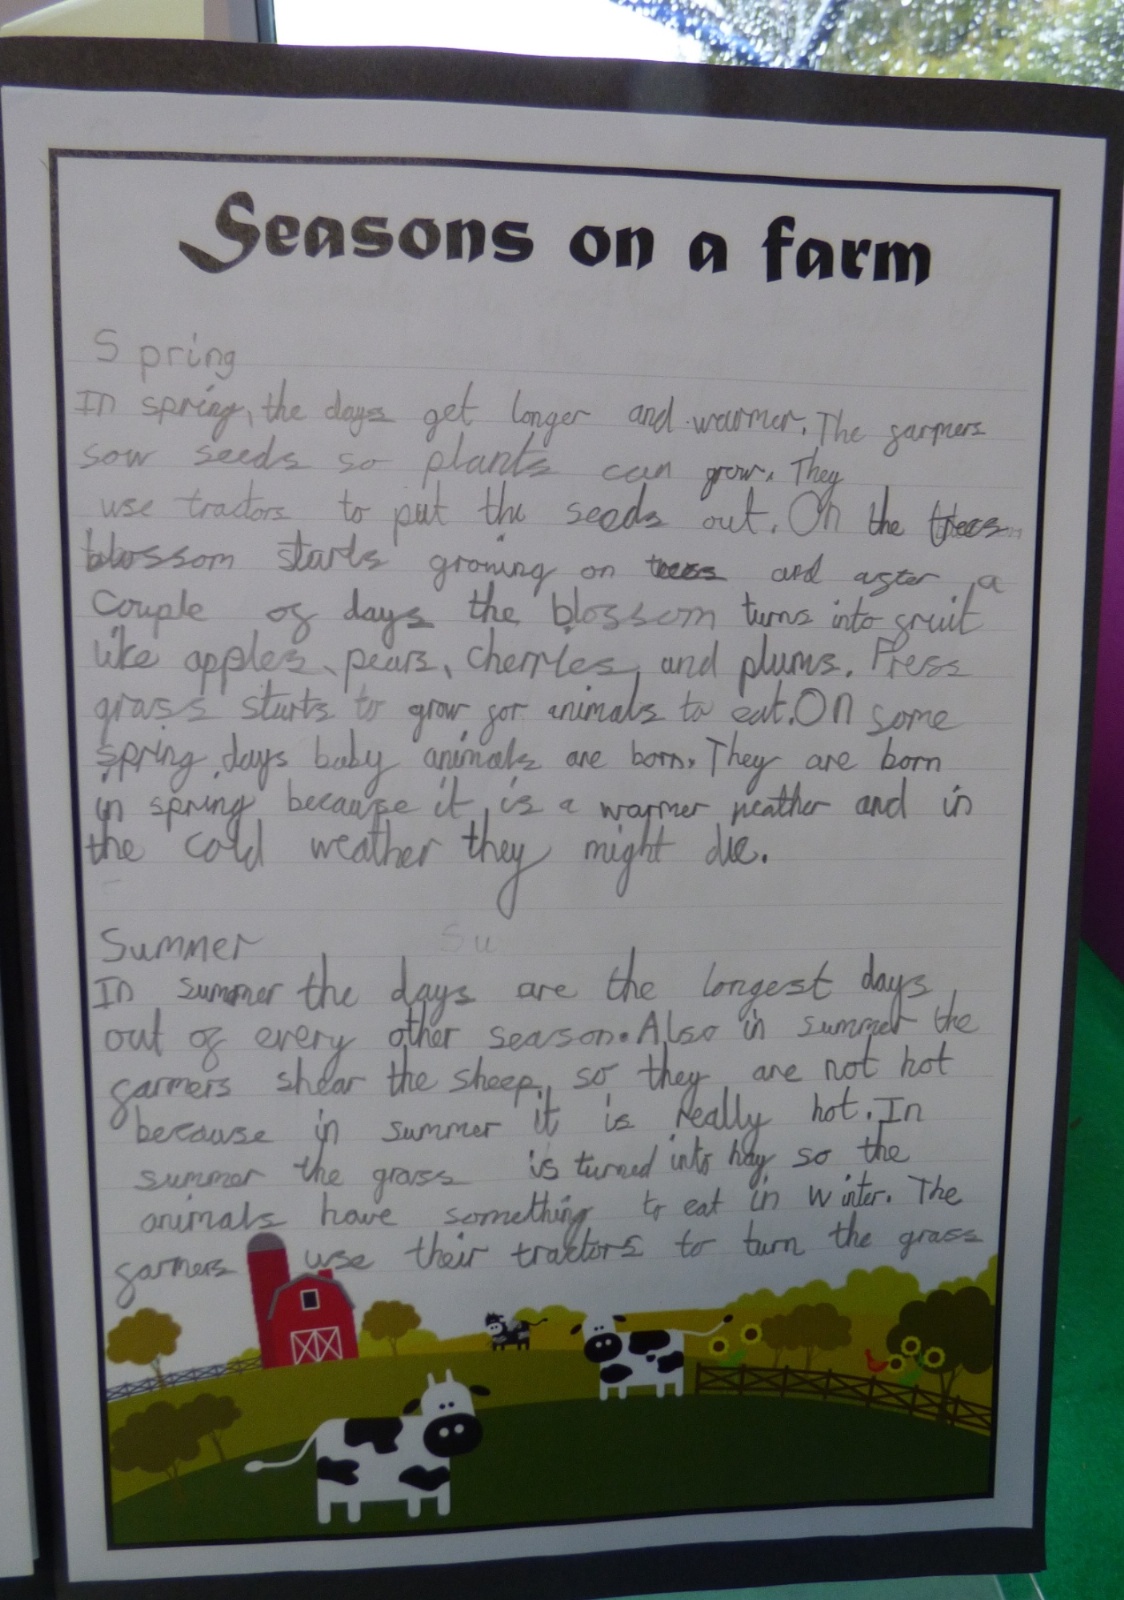 Seasons on a farm
Spring
In spring, the days get longer and warmer. The farmers
sow seeds so plants can grow. They
use tractors to put the seeds out. On the trees
blossom starts growing on trees and after a
couple of days the blossom turns into fruit
like apples, pears, cherries, and plums. Fress
grass starts to grow for animals to eat. On some
spring days baby animals are born. They are born
in spring because it is a warmer weather and in
the cold weather they might die.
Summer Su
In summer the days are the longest days
out of every other season. Also in summer the
farmers shear the sheep, so they are not hot
because in summer it is really hot. In
summer the grass is turned into hay so the
animals have something to eat in winter. The
farmers use their tractors to turn the grass